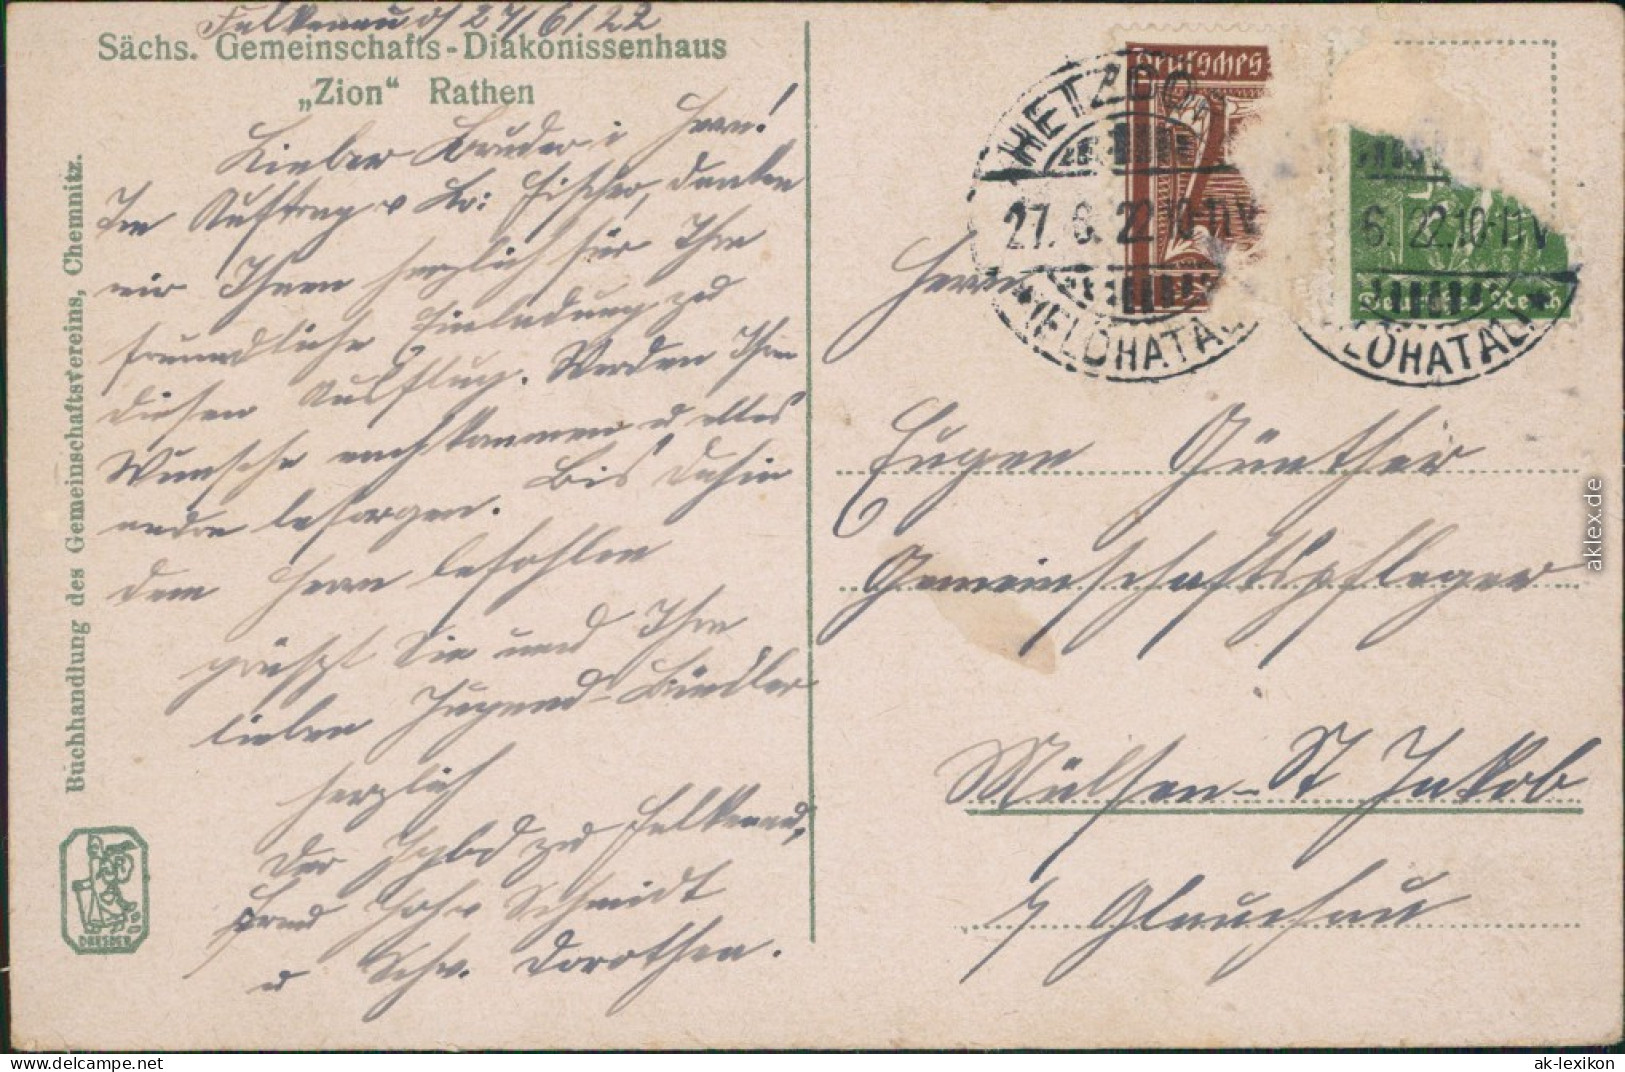 Falkenau d/ 27/6/22
Sächs. Gemeinschafts-Diakonissenhaus
„Zion“ Rathen
Lieber Bruder i Herrn!
Im Auftrag v Br: Fischer, danken
wir Ihnen herzlich für Ihre
freundliche Einladung zu
diesen Ausflug. Werden Ihren
Wunsche nachkommen u alles
andre besorgen. Bis dahin
dem Herrn befohlen
grüszt Sie und Ihre
lieben Jugend-Bündler
herzlich
Der Jgbd zu Falkenau,
Schmidt
u Schw. Dorothea.
Buchhandlung des Gemeinschaftsvereins, Chemnitz.
DRESDEN
Deutsches
HETZDO
27. 6. 22.10-11V
*(FLÖHATAL
6. 22.10-11V
Deutsches Reich
LÖHATAL) *
Herrn
Eugen Günther
Gemeinschaftspfleger
Mülsen-St Jakob
b/ Glauchau
aklex.de
www.delcampe.net
ak-lexikon